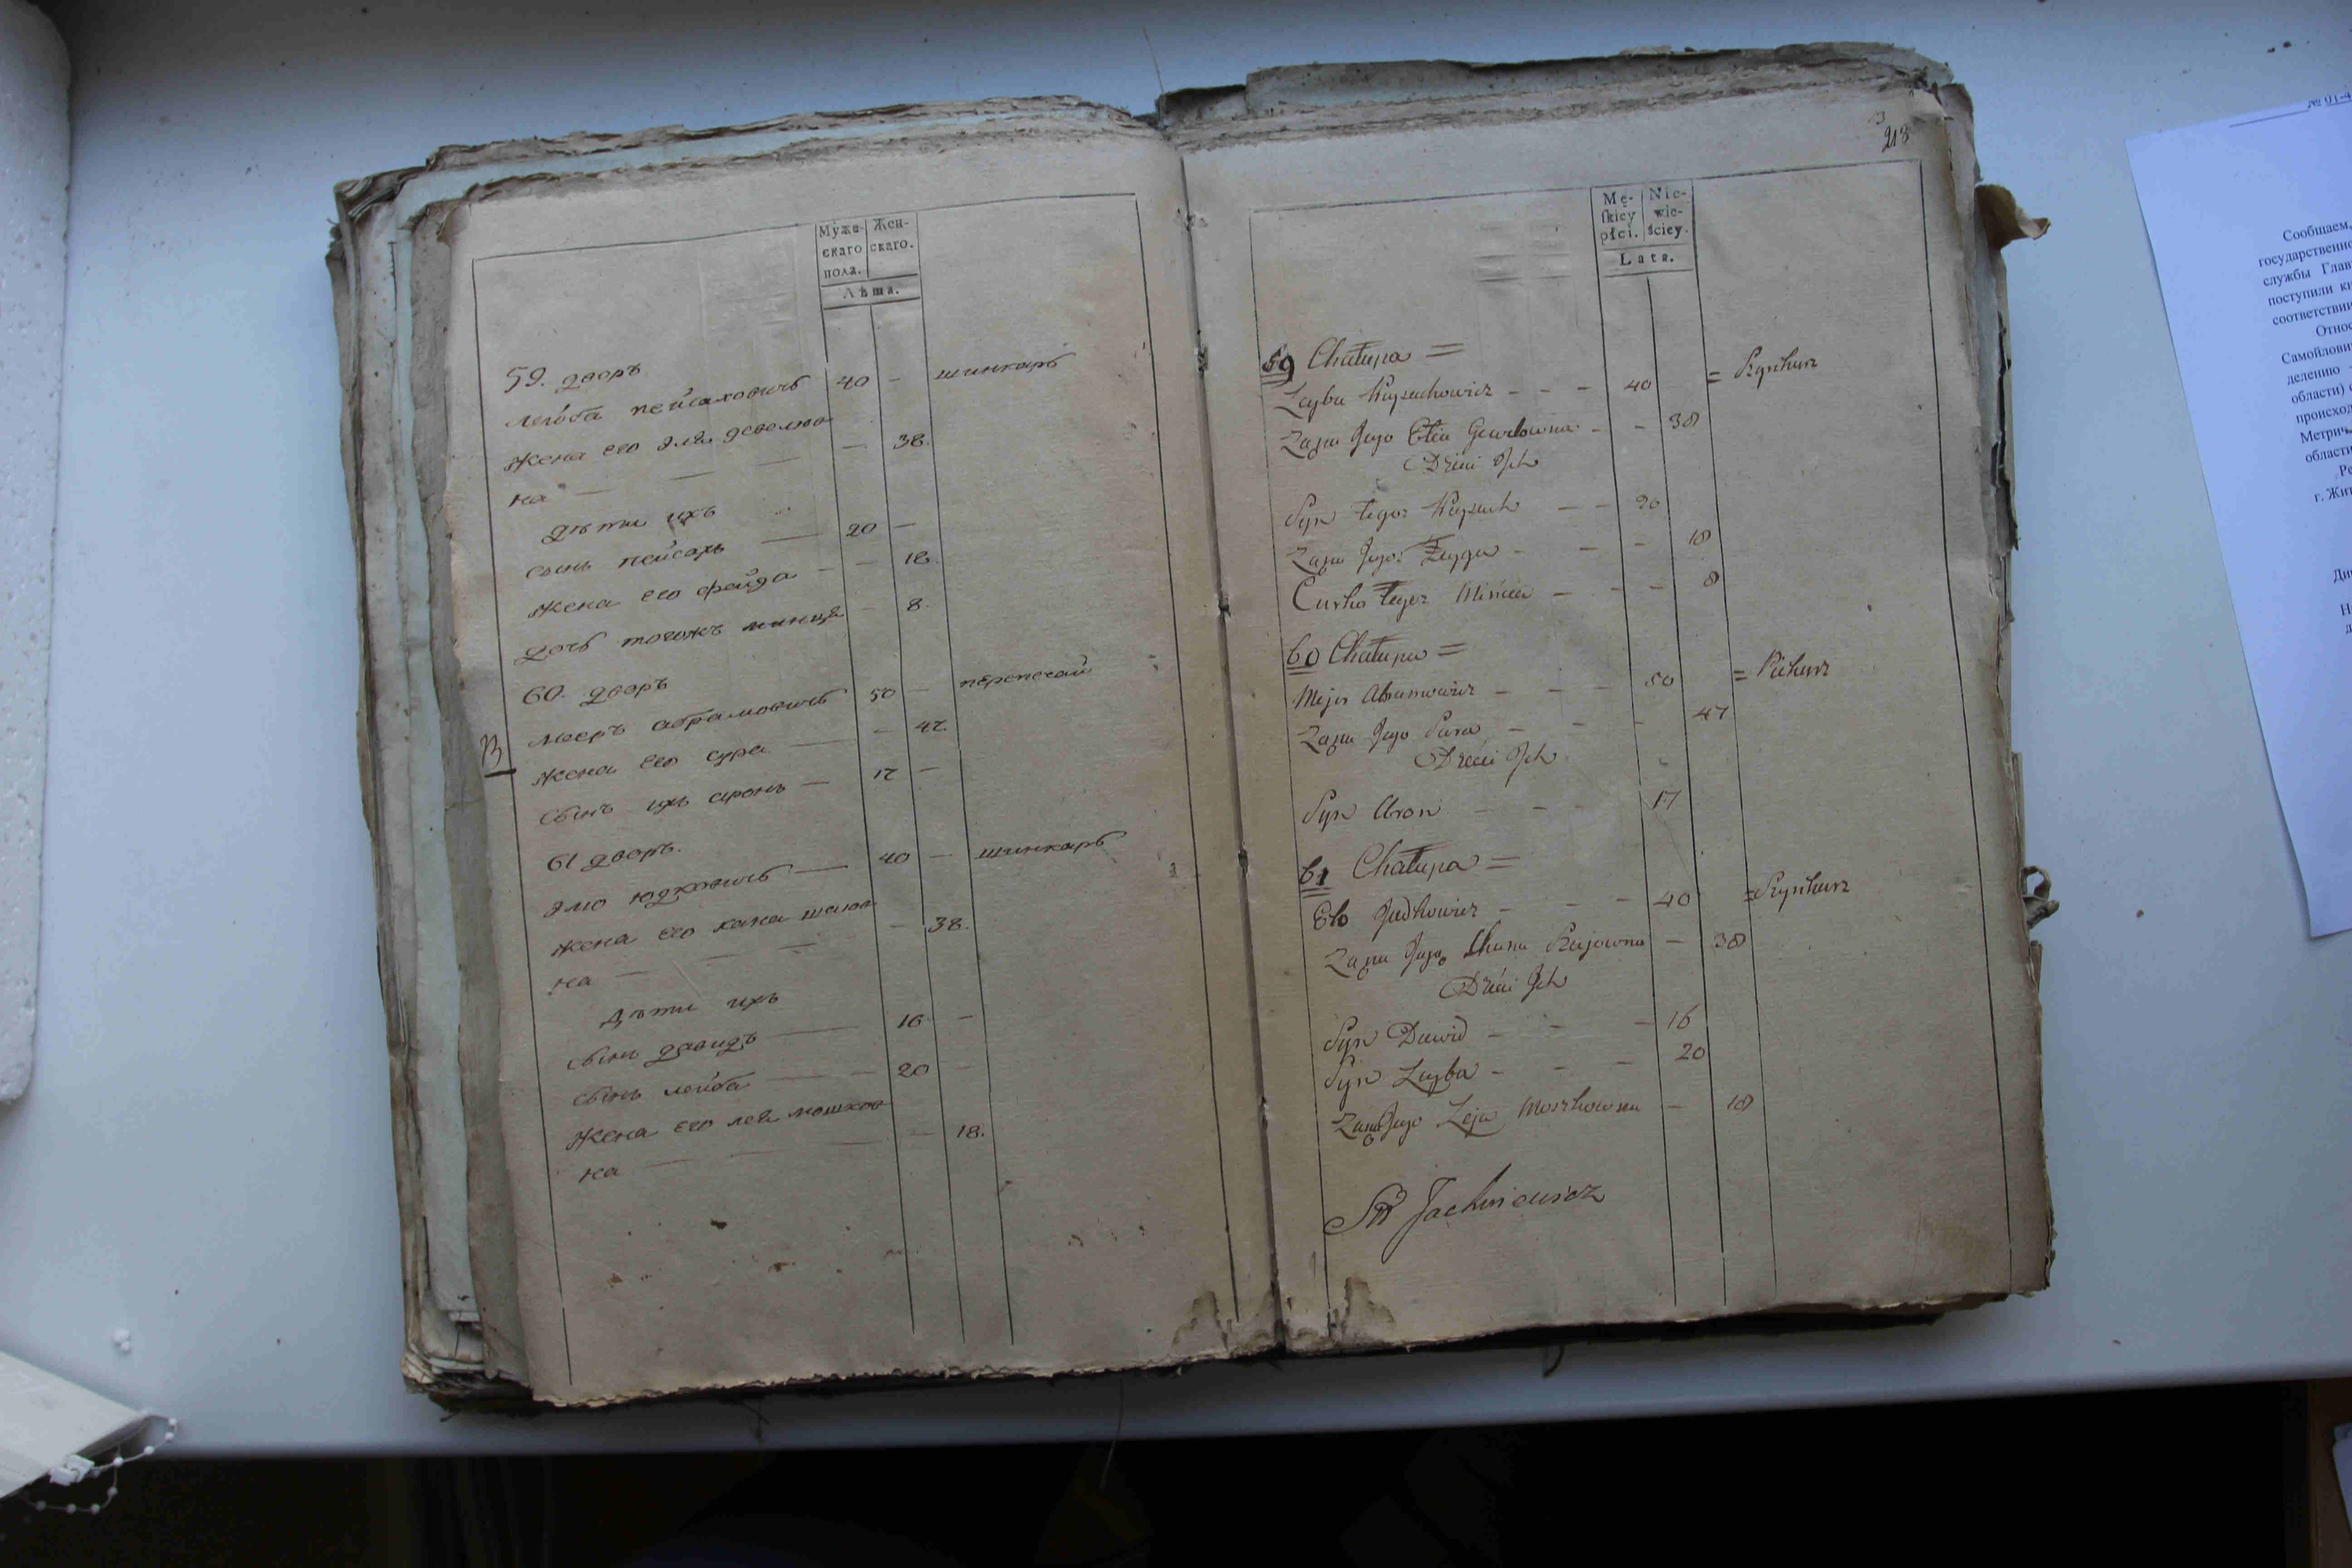 Муже-
скаго
пола.
Жен-
скаго.
Лѣта.
59. дворъ
лейба пейсаховичъ 40 — шинкарь
жена его эля деволю
на — — — — 38.
дѣти ихъ
сынъ пейсахъ — 20 —
жена его фейга — — 18.
дочь тогожъ минця — 8.
60. дворъ
В мееръ абрамовичъ 50 — перепечай
жена его сура — — 47.
сынъ ихъ аронъ — 17 —
61 дворъ.
элю юдковичъ — 40 — шинкарь
жена его хана шаио
на — — — 38.
дѣти ихъ
сынъ давидъ — 16 —
сынъ лейба — — 20 —
жена его лея мошков
на — — — 18.
213
Mę-
skiey
płci.
Nie-
wie-
ściey.
Lata.
59 Chałupa =
Leyba Peysachowicz - - - 40 = Szynkarz
Żona Jego Elia - - 38
Dzieci Jch
Syn tegoż Peysach - - 20
Żona Jego Feyga - - - 18
Curka tegoż Mincia - - - 8
60 Chałupa =
Mejer Abramowicz - - - 50 = Piekarz
Żona Jego Sura - - - 47
Dzieci Jch
Syn Aron - - - 17
61 Chałupa =
Elo Judkowicz - - - 40 = Szynkarz
Żona Jego Chana Szajowna - 38
Dzieci Jch
Syn Dawid - - - 16
Syn Leyba - - - 20
Żona Jego Leja Moszkowna - 18
Jachniewicz
№ 01-4
Сообщаем,
государственно
службы Глав
поступили кн
соответстви
Относ
Самойлови
делению
области)
происход
Метрич
области
г. Жит